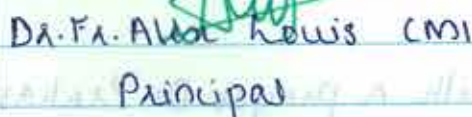 Dr. Fr. Louis CMI
Principal